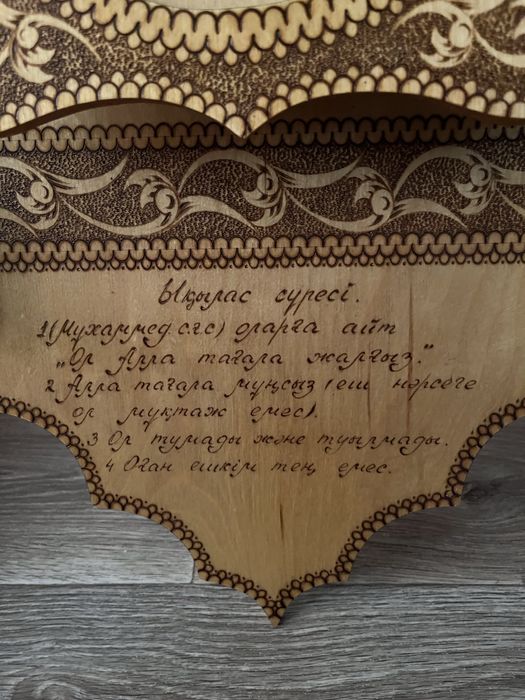 Ықылас сүресі.
1(Мұхаммед с.ғ.с) оларға айт
„Ол Алла тағала жалғыз."
2 Алла тағала мұңсыз (еш нәрсеге
ол мұқтаж емес).
3 Ол тумады және туылмады.
4 Оған ешкім тең емес.